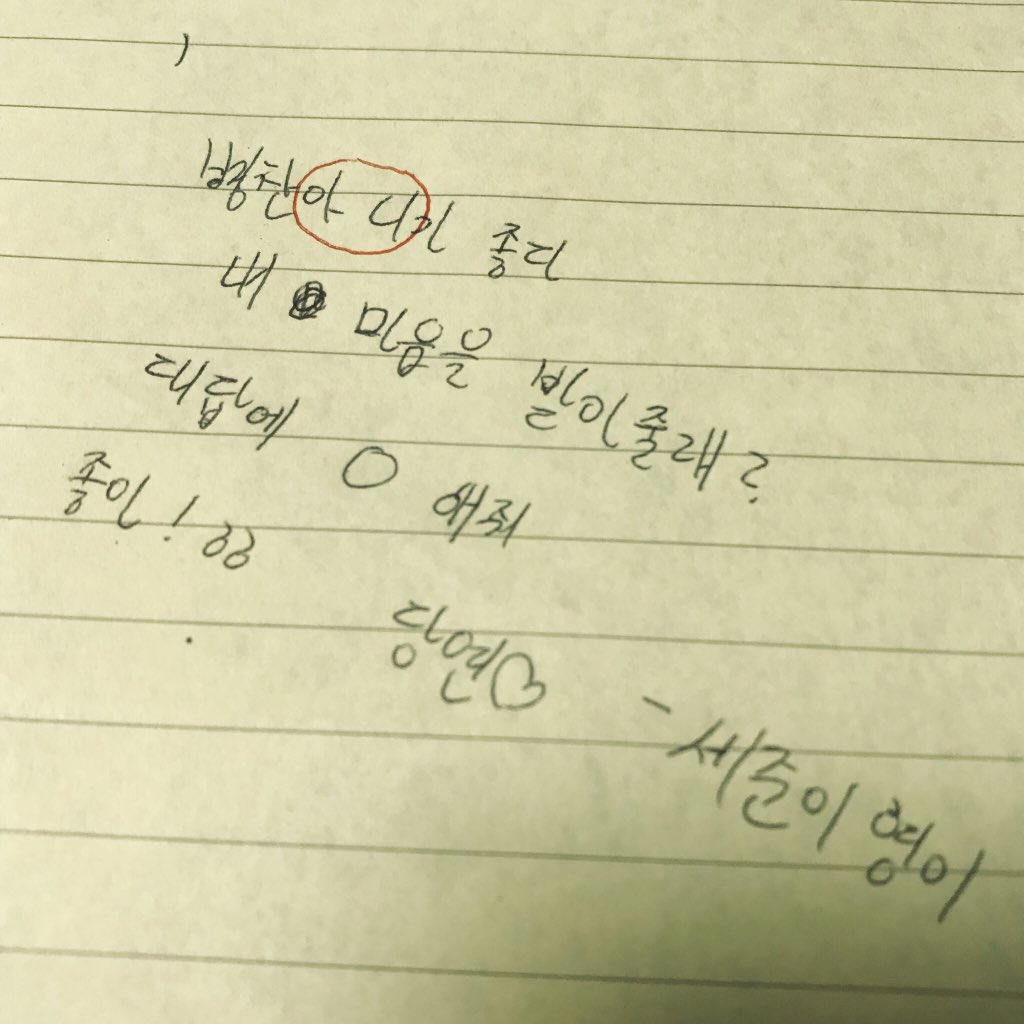 병찬아 니가 좋다
내 마음을 받아줄래?
대답에 O 해줘
좋아! ㅎㅎ
당연♡
- 세준이 형이